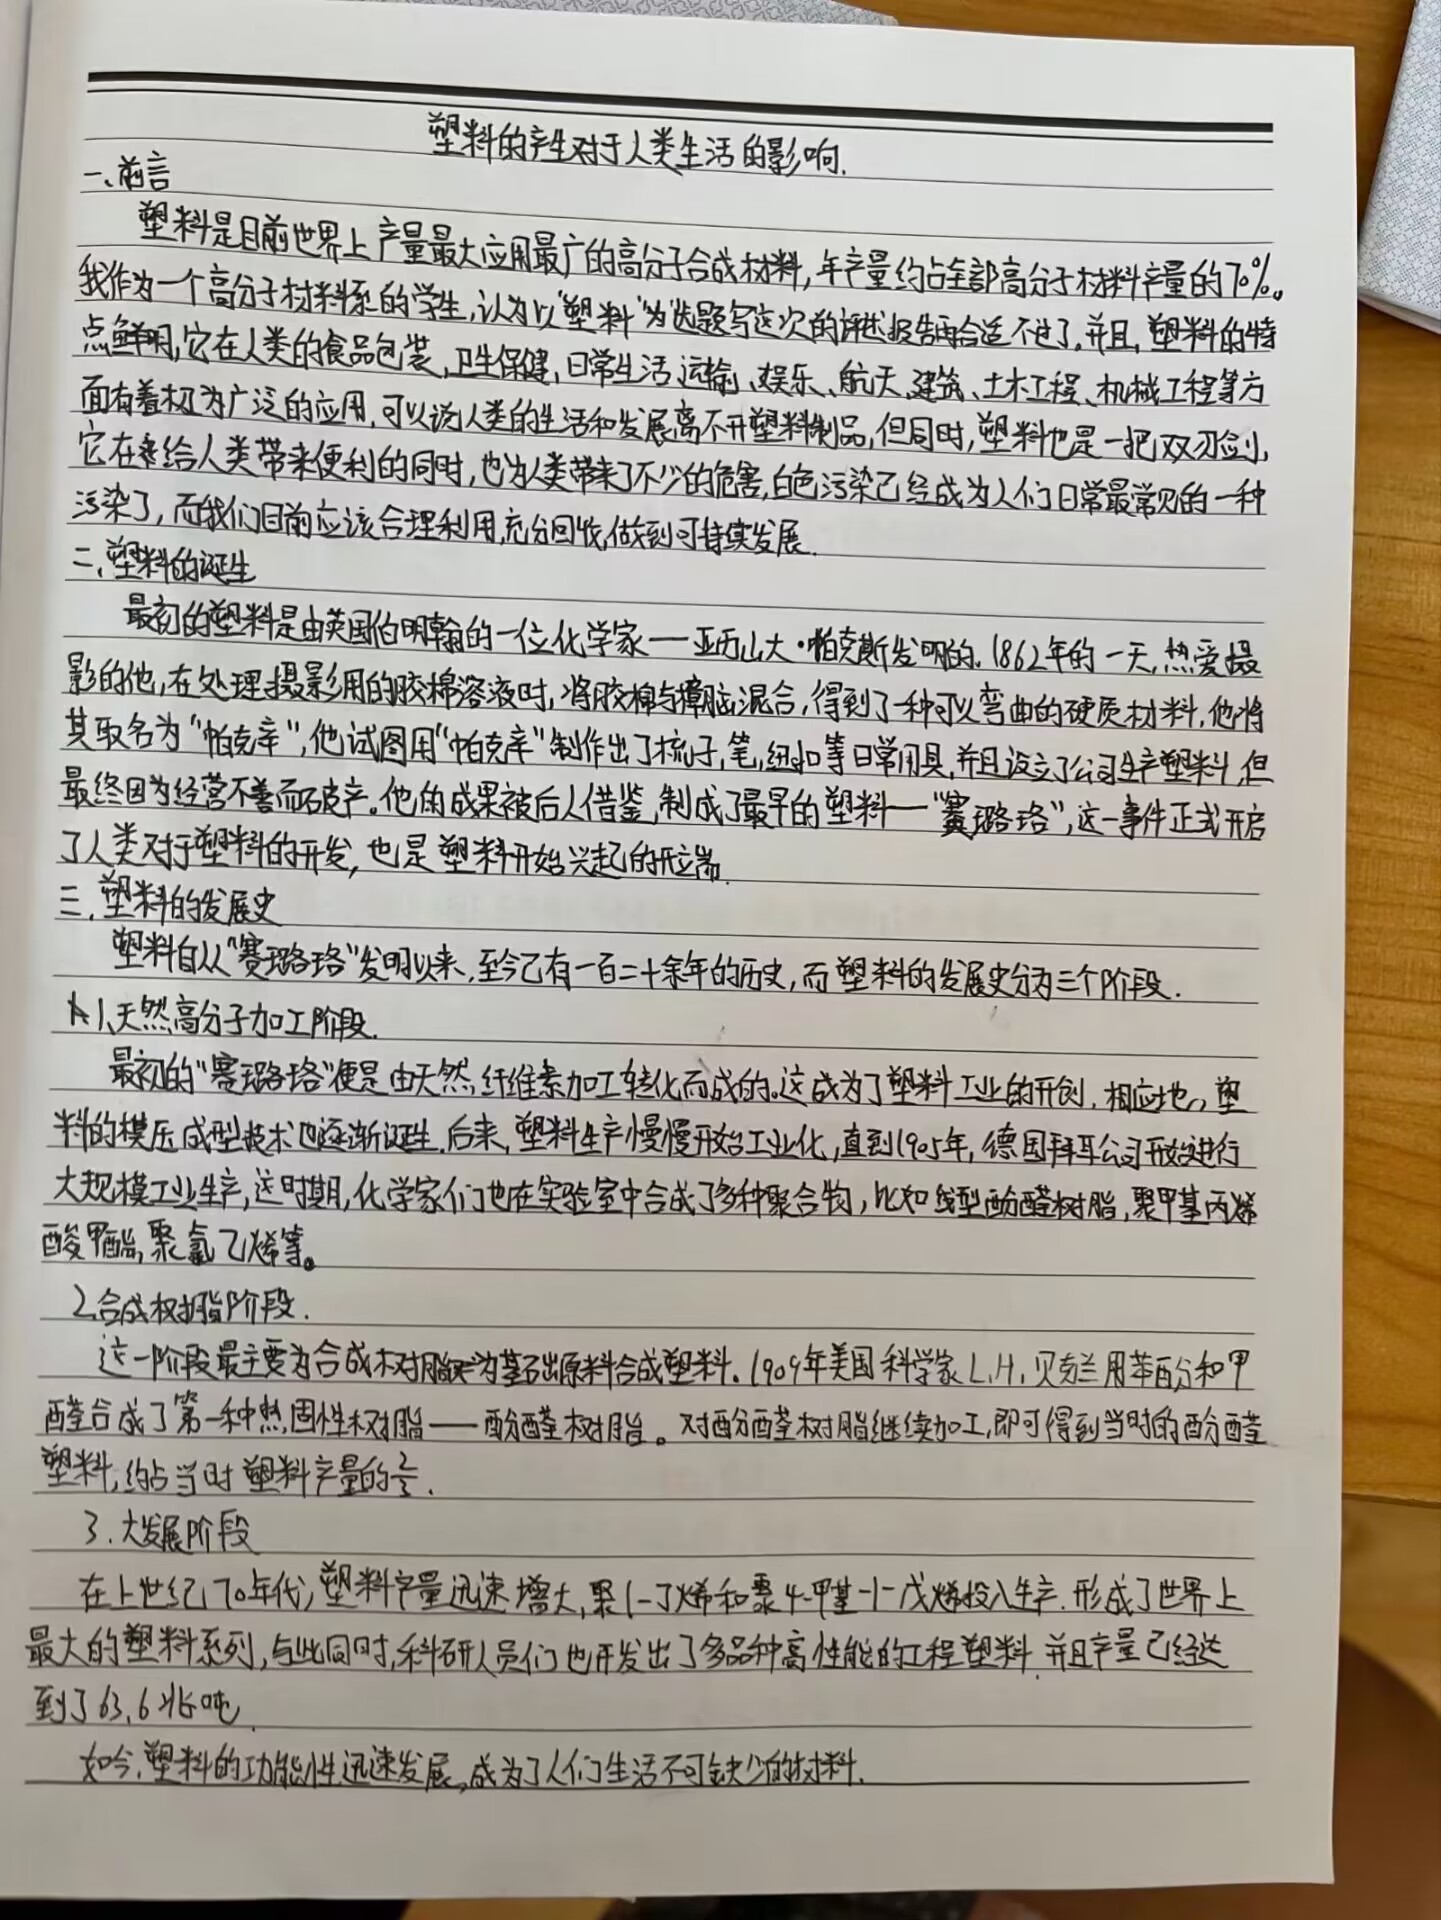 塑料的产生对于人类生活的影响.
一、前言
塑料是目前世界上产量最大应用最广的高分子合成材料,年产量约占全部高分子材料产量的70%。
我作为一个高分子材料系的学生,认为以"塑料"为选题写这次的评述报告再合适不过了,并且,塑料的特
点鲜明,它在人类的食品包装,卫生保健,日常生活、运输、娱乐、航天、建筑、土木工程、机械工程等方
面有着极为广泛的应用,可以说人类的生活和发展离不开塑料制品,但同时,塑料也是一把双刃剑,
它在给人类带来便利的同时,也为人类带来了不少的危害,白色污染已经成为人们日常最常见的一种
污染了,而我们目前应该合理利用,充分回收,做到可持续发展.
二、塑料的诞生
最初的塑料是由英国伯明翰的一位化学家——亚历山大·帕克斯发明的。1862年的一天,热爱摄
影的他,在处理摄影用的胶棉溶液时,将胶棉与樟脑混合,得到了一种可以弯曲的硬质材料,他将
其取名为"帕克辛",他试图用"帕克辛"制作出了梳子,笔,纽扣等日常用具,并且设立了公司生产塑料,但
最终因为经营不善而破产。他的成果被后人借鉴,制成了最早的塑料——"赛璐珞",这一事件正式开启
了人类对于塑料的开发,也是塑料开始兴起的开端.
三、塑料的发展史
塑料自从"赛璐珞"发明以来,至今已有一百二十余年的历史,而塑料的发展史分为三个阶段.
1、天然高分子加工阶段.
最初的"赛璐珞"便是由天然纤维素加工转化而成的。这成为了塑料工业的开创,相应地,塑
料的模压成型技术也逐渐诞生.后来,塑料生产慢慢开始工业化,直到1905年,德国拜耳公司开始进行
大规模工业生产,这时期,化学家们也在实验室中合成了多种聚合物,比如线型酚醛树脂,聚甲基丙烯
酸甲酯,聚氯乙烯等。
2.合成树脂阶段.
这一阶段最主要为合成树脂为基础原料合成塑料。1909年美国科学家L.H.贝克兰用苯酚和甲
醛合成了第一种热固性树脂——酚醛树脂。对酚醛树脂继续加工,即可得到当时的酚醛
塑料,约占当时塑料产量的2/3.
3.大发展阶段
在上世纪70年代,塑料产量迅速增大,聚1-丁烯和聚4-甲基-1-戊烯投入生产.形成了世界上
最大的塑料系列,与此同时,科研人员们也开发出了多品种高性能的工程塑料.并且产量已经达
到了63.6兆吨.
如今,塑料的功能性迅速发展,成为了人们生活不可缺少的材料.